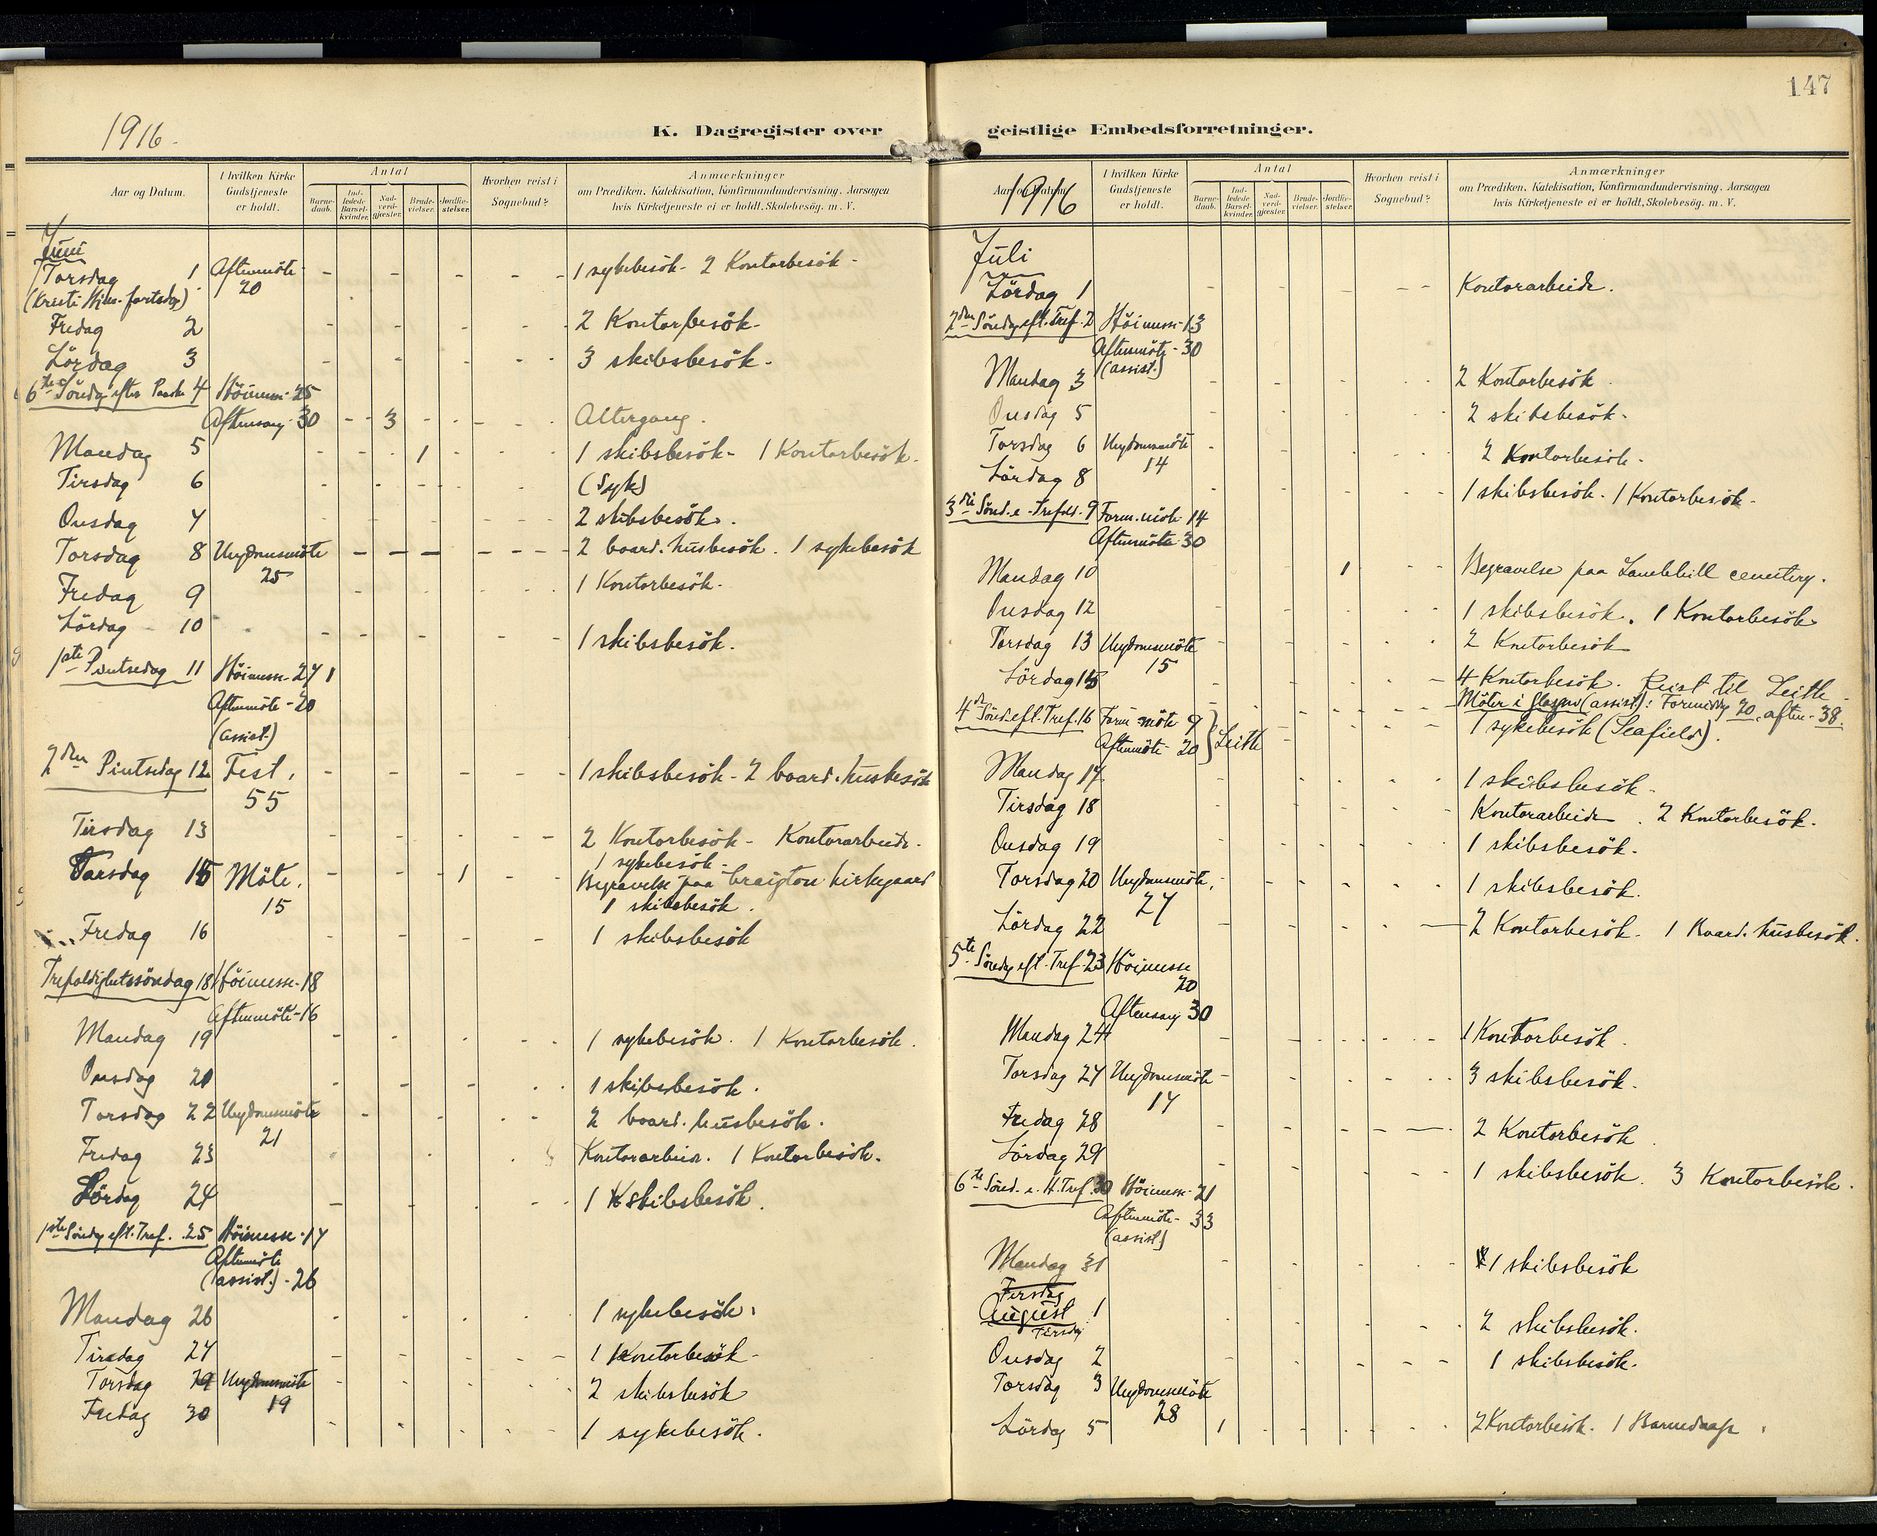 147
1916.
K. Dagregister over geistlige Embedsforretninger.
Aar og Datum.
I hvilken Kirke Gudstjeneste er holdt.
Antal
Barnedaab.
Indledede Barselkvinder.
Nadverdgjester.
Brudevielser.
Jordfæstelser.
Hvorhen reist i Sognebud?
Anmærkninger
om Prædiken, Katekisation, Konfirmandundervisning. Aarsagen
hvis Kirketjeneste ei er holdt, Skolebesøg. m. V.
Juni
Torsdag 1 Aftenmöte 20 - - - - - 1 sykebesök - 2 Kontorbesök -
Fredag 2 - - - - - 2 Kontorbesök -
Lördag 3 - - - - 3 skibsbesök -
6te Söndag efter Paaske 4 Höimesse - 25
Aftensang - 30 - - 3 - - - Altergang.
Mandag 5 - - - 1 - - - 1 skibsbesök - 1 Kontorbesök.
Tirsdag 6 - - - - - (Syk)
Onsdag 7 - - - - - 2 skibsbesök.
Torsdag 8 Ungdomsmöte 25 - - - - - - 2 board. husbesök. 1 sykebesök
Fredag 9 - - - - - 1 Kontorbesök -
Lördag - 10 - - - - - - 1 skibsbesök.
1ste Pintsedag 11 Höimesse - 27 1
Aftenmöte - 20
(assist.)
2den Pintsedag 12 Fest. 55 - - - - - - 1 skibsbesök - 2 board. husbesök
Tirsdag 13 - - - - - 2 Kontorbesök - Kontorarbeide.
1 sykebesök -
Torsdag 15 Möte. 15 - - - 1 - - Begravelse paa Craigton kirkegaard
1 skibsbesök.
Fredag 16 - - - - 1 skibsbesök
Trefoldighetssöndag 18 Höimesse - 18
Aftenmöte - 16
Mandag 19 - - - - - 1 sykebesök. 1 Kontorbesök.
Onsdag 21 - - - - - 1 skibsbesök.
Torsdag 22 Ungdomsmöte 21 - - - - - 2 board. husbesök.
Fredag 23 - - - Kontorarbeide. 1 Kontorbesök.
Lördag 24 - - - - - 1 skibsbesök.
1ste Söndag eft. Tref. 25 Höimesse - 17
Aftenmöte
(assist.) - 26
Mandag 26 - - - - - 1 sykebesök.
Tirsdag 27 - - - - - 1 Kontorbesök -
Torsdag 29 Ungdomsmöte 19 - - - - - 2 skibsbesök
Fredag 30 - - - - - 1 sykebesök.
Aar og Datum.
1916
I hvilken Kirke Gudstjeneste er holdt.
Antal
Barnedaab.
Indledede Barselkvinder.
Nadverdgjester.
Brudevielser.
Jordfæstelser.
Hvorhen reist i Sognebud?
Anmærkninger
om Prædiken, Katekisation, Konfirmandundervisning. Aarsagen
hvis Kirketjeneste ei er holdt, Skolebesög. m. V.
Juli
Lördag 1 - - - - - - - Kontorarbeide.
2den Söndag eft. Tref. 2 Höimesse - 13
Aftenmöte - 30
(assist.)
Mandag 3 - - - - - - - 2 Kontorbesök.
Onsdag 5 - - - - - - - 2 skibsbesök -
Torsdag 6 Ungdomsmöte 14 - - - - - - 2 Kontorbesök -
Lördag 8 - - - - - - - 1 skibsbesök - 1 Kontorbesök -
3die Sönd. e. Trefold. 9 Form. möte 14
Aftenmöte 30
Mandag 10 - - - - 1 - - Begravelse paa Lambhill cemetery.
Onsdag 12 - - - - - - 1 skibsbesök. 1 Kontorbesök
Torsdag 13 Ungdomsmöte 15 - - - - - - 2 Kontorbesök
Lördag 15 - - - - - - 4 Kontorbesök. Reist til Leith -
Möter i Glasgow (assist.): Formiddag 20, aften - 38.
4de Sönd. eft. Tref. 16 Form. möte 9
Aftenmöte - 20 } Leith - - - - 1 sykebesök (Seafield).
Mandag 17 - - - - - - 1 skibsbesök -
Tirsdag 18 - - - - - - Kontorarbeide. 2 Kontorbesök.
Onsdag 19 - - - - - - 1 skibsbesök.
Torsdag 20 Ungdomsmöte. 27 - - - - - - 1 skibsbesök.
Lördag 22 - - - - - - 2 Kontorbesök. 1 Board. husbesök.
5te Söndag eft. Tref. 23 Höimesse 20
Aftensang 30
Mandag 24 - - - - - - 1 Kontorbesök.
Torsdag 27 Ungdomsmöte 17 - - - - - - 3 skibsbesök.
Fredag 28 - - - - - - 2 Kontorbesök.
Lördag 29 - - - - - - 1 skibsbesök. 3 Kontorbesök.
6te Sönd. e. H. Tref. 30 Höimesse - 21
Aftenmöte - 33
(assist.)
Mandag 31 - - - - - 1 skibsbesök
Tirsdag
August 1 - - - - - - 2 skibsbesök.
Tirsdag
Onsdag 2 - - - - - - 1 skibsbesök.
Torsdag 3 Ungdomsmöte 28
Lördag 5 1 - - - - - - 2 Kontorbesök. 1 Barnedaap.